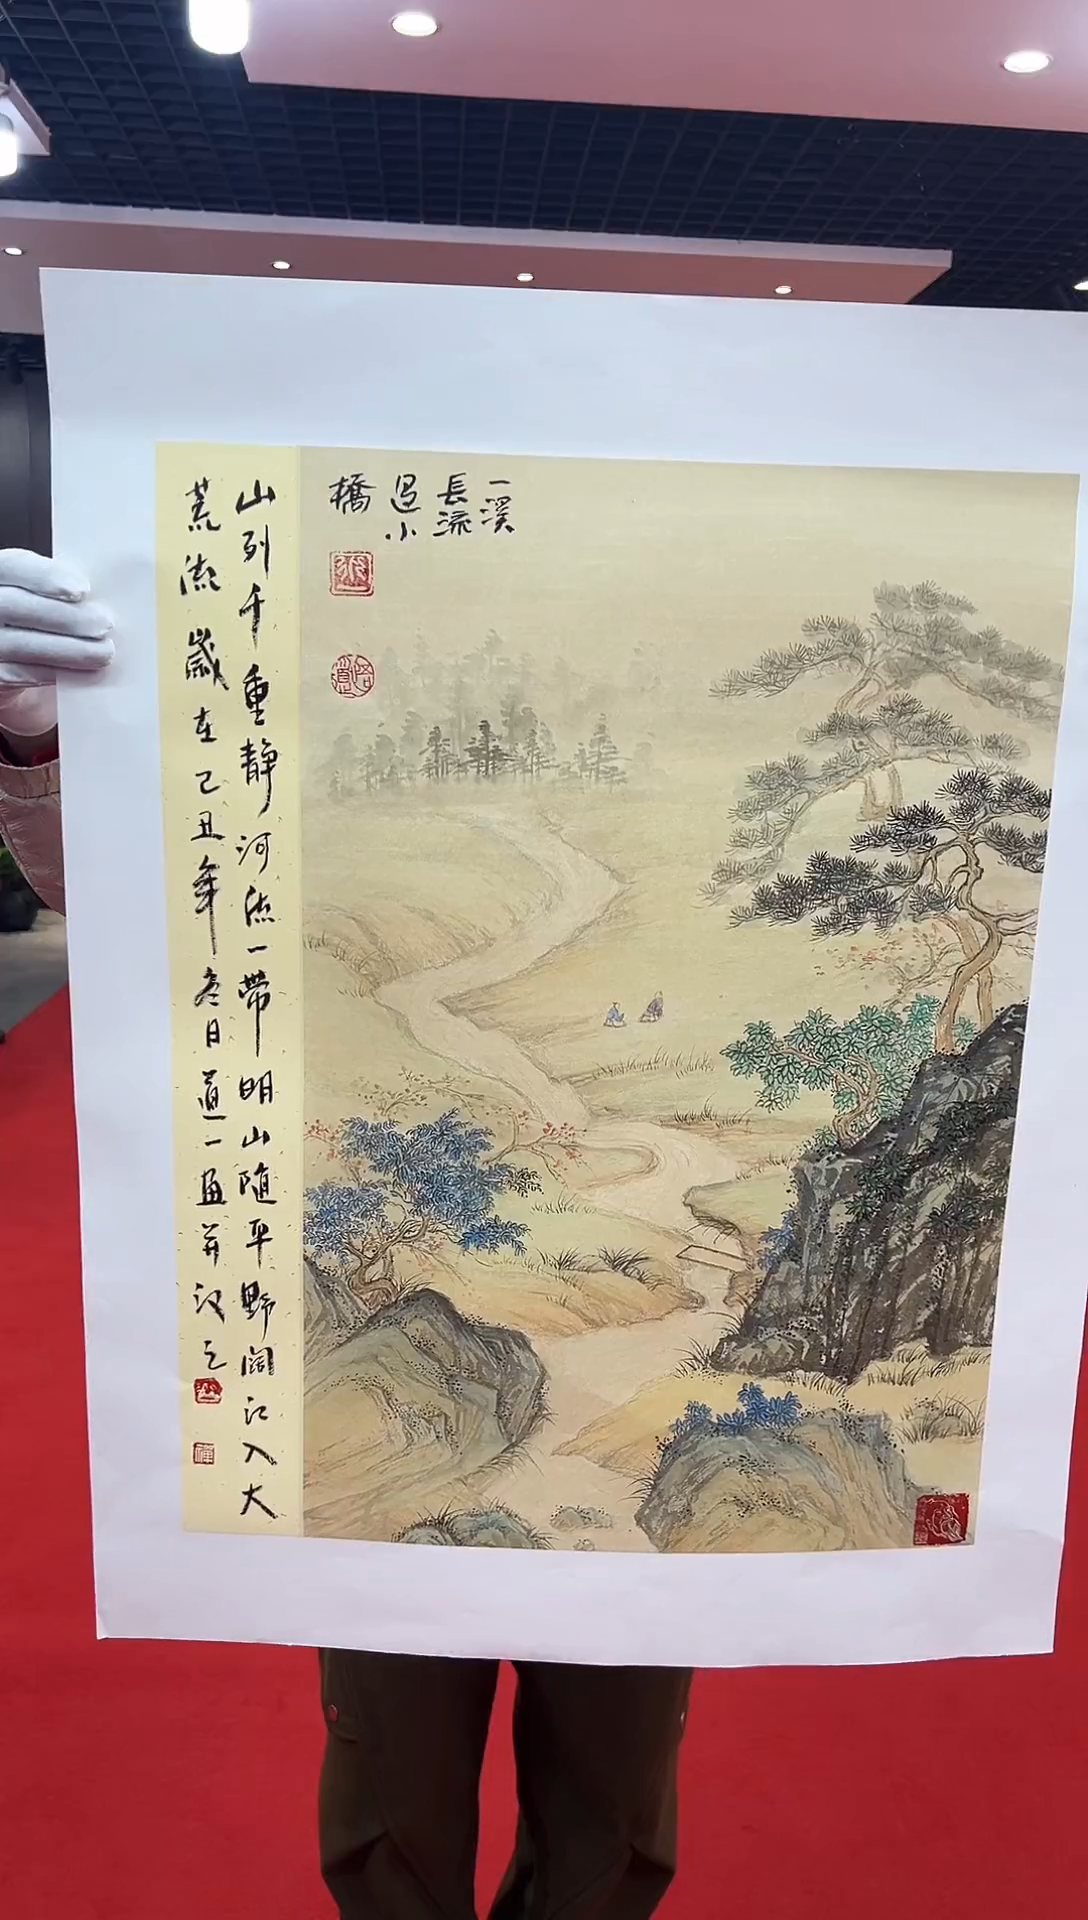 一溪
長流
過小
橋
山列千重静河流一带明山随平野阔江入大
荒流歲在己丑年冬日道一画并汉之